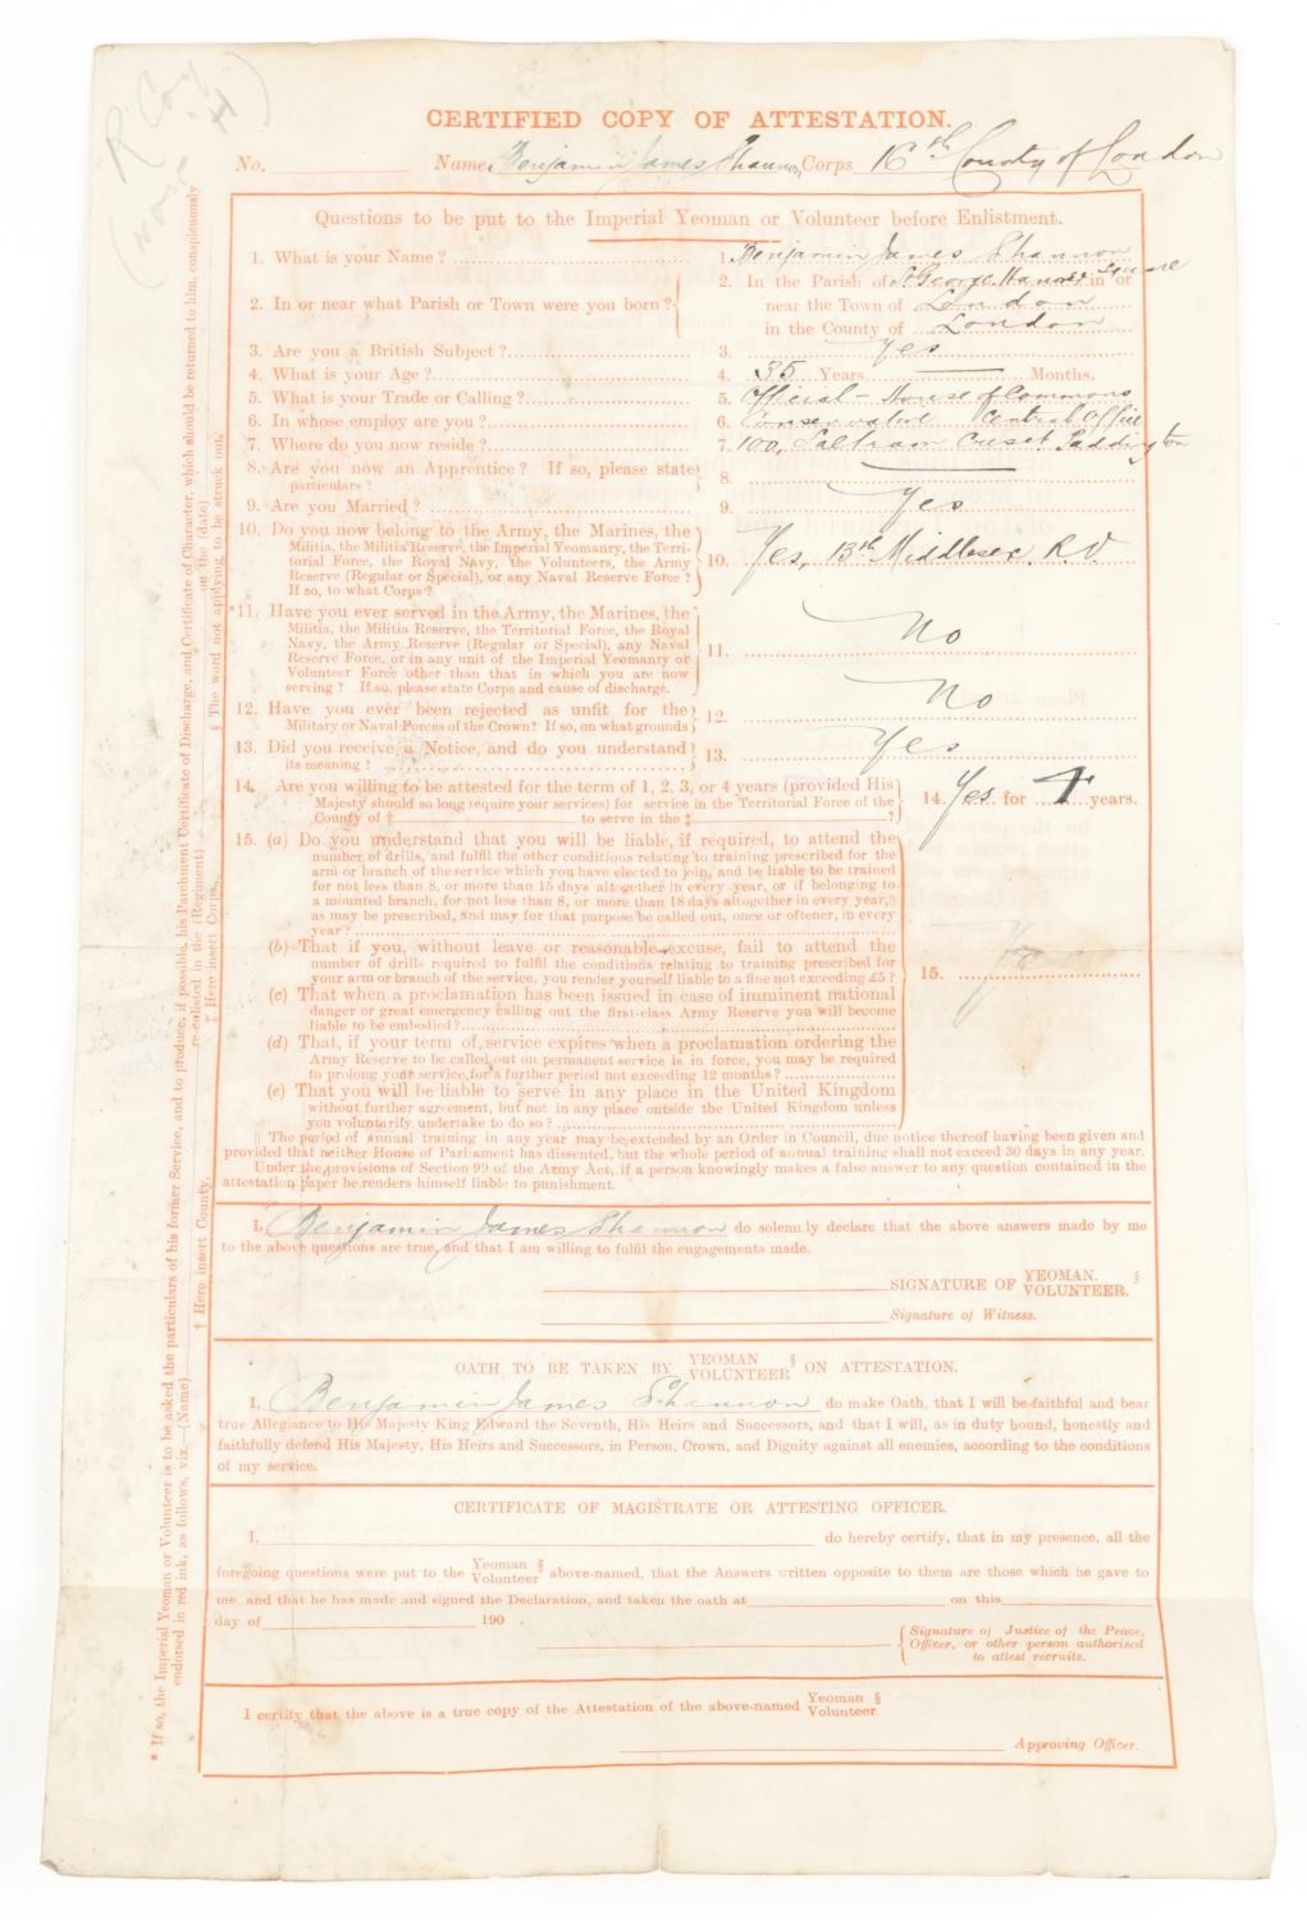 CERTIFIED COPY OF ATTESTATION.
No. Name Benjamin James Shannon Corps 16th County of London
Questions to be put to the Imperial Yeoman or Volunteer before Enlistment.
1. What is your Name? 1. Benjamin James Shannon
2. In or near what Parish or Town were you born? 2. In the Parish of St George Hanover Square in or
near the Town of London
in the County of London
3. Are you a British Subject? 3. Yes
4. What is your Age? 4. 35 Years — Months.
5. What is your Trade or Calling? 5. Official - House of Commons
6. In whose employ are you? 6. Conservative Central Office
7. Where do you now reside? 7. 100, Saltram Cresct. Paddington
8. Are you now an Apprentice? If so, please state
particulars? 8. —
9. Are you Married? 9. Yes
10. Do you now belong to the Army, the Marines, the
Militia, the Militia Reserve, the Imperial Yeomanry, the Terri-
torial Force, the Royal Navy, the Volunteers, the Army
Reserve (Regular or Special), or any Naval Reserve Force?
If so, to what Corps? 10. Yes, 13th Middlesex. R.V.
*11. Have you ever served in the Army, the Marines, the
Militia, the Militia Reserve, the Territorial Force, the Royal
Navy, the Army Reserve (Regular or Special), any Naval
Reserve Force, or in any unit of the Imperial Yeomanry or
Volunteer Force other than that in which you are now
serving? If so, please state Corps and cause of discharge. 11. No
12. Have you ever been rejected as unfit for the
Military or Naval Forces of the Crown? If so, on what grounds 12. No
13. Did you receive a Notice, and do you understand
its meaning? 13. Yes
14. Are you willing to be attested for the term of 1, 2, 3, or 4 years (provided His
Majesty should so long require your services) for service in the Territorial Force of the
County of † to serve in the ‡ ? 14. Yes for years.
15. (a) Do you understand that you will be liable, if required, to attend the
number of drills, and fulfil the other conditions relating to training prescribed for the
arm or branch of the service which you have elected to join, and be liable to be trained
for not less than 8, or more than 15 days altogether in every year, or if belonging to
a mounted branch, for not less than 8, or more than 18 days altogether in every year,||
as may be prescribed, and may for that purpose be called out, once or oftener, in every
year?
(b) That if you, without leave or reasonable excuse, fail to attend the
number of drills required to fulfil the conditions relating to training prescribed for
your arm or branch of the service, you render yourself liable to a fine not exceeding £5? 15. Yes
(c) That when a proclamation has been issued in case of imminent national
danger or great emergency calling out the first-class Army Reserve you will become
liable to be embodied?
(d) That, if your term of service expires when a proclamation ordering the
Army Reserve to be called out on permanent service is in force, you may be required
to prolong your service for a further period not exceeding 12 months?
(e) That you will be liable to serve in any place in the United Kingdom
without further agreement, but not in any place outside the United Kingdom unless
you voluntarily undertake to do so?
|| The period of annual training in any year may be extended by an Order in Council, due notice thereof having been given and
provided that neither House of Parliament has dissented, but the whole period of annual training shall not exceed 30 days in any year.
Under the provisions of Section 99 of the Army Act, if a person knowingly makes a false answer to any question contained in the
attestation paper he renders himself liable to punishment.
I, Benjamin James Shannon do solemnly declare that the above answers made by me
to the above questions are true, and that I am willing to fulfil the engagements made.
SIGNATURE OF YEOMAN. VOLUNTEER. §
Signature of Witness.
OATH TO BE TAKEN BY YEOMAN VOLUNTEER § ON ATTESTATION.
I, Benjamin James Shannon do make Oath, that I will be faithful and bear
true Allegiance to His Majesty King Edward the Seventh, His Heirs and Successors, and that I will, as in duty bound, honestly and
faithfully defend His Majesty, His Heirs and Successors, in Person, Crown, and Dignity against all enemies, according to the conditions
of my service.
CERTIFICATE OF MAGISTRATE OR ATTESTING OFFICER.
I, do hereby certify, that in my presence, all the
foregoing questions were put to the Yeoman Volunteer § above-named, that the Answers written opposite to them are those which he gave to
me, and that he has made and signed the Declaration, and taken the oath at on this
day of 190 .
Signature of Justice of the Peace,
Officer, or other person authorised
to attest recruits.
I certify that the above is a true copy of the Attestation of the above-named Yeoman Volunteer §
Approving Officer.
* If so, the Imperial Yeoman or Volunteer is to be asked the particulars of his former Service, and to produce, if possible, his Parchment Certificate of Discharge, and Certificate of Character, which should be returned to him, conspicuously
endorsed in red ink, as follows, viz.—(Name) re-enlisted in the (Regiment) on the (date)
† Here insert County. ‡ Here insert Corps. § The word not applying to be struck out.